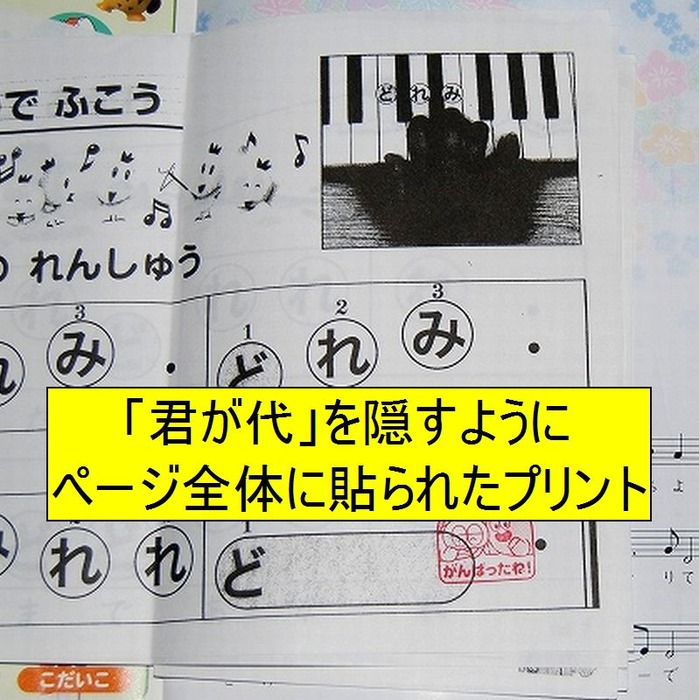 で ふこう
どれみ
れんしゅう
3 1 2 3
み どれみ
「君が代」を隠すように
ページ全体に貼られたプリント
よ
れ れ ど
がんばったね!
りて
まで
で
こだいこ